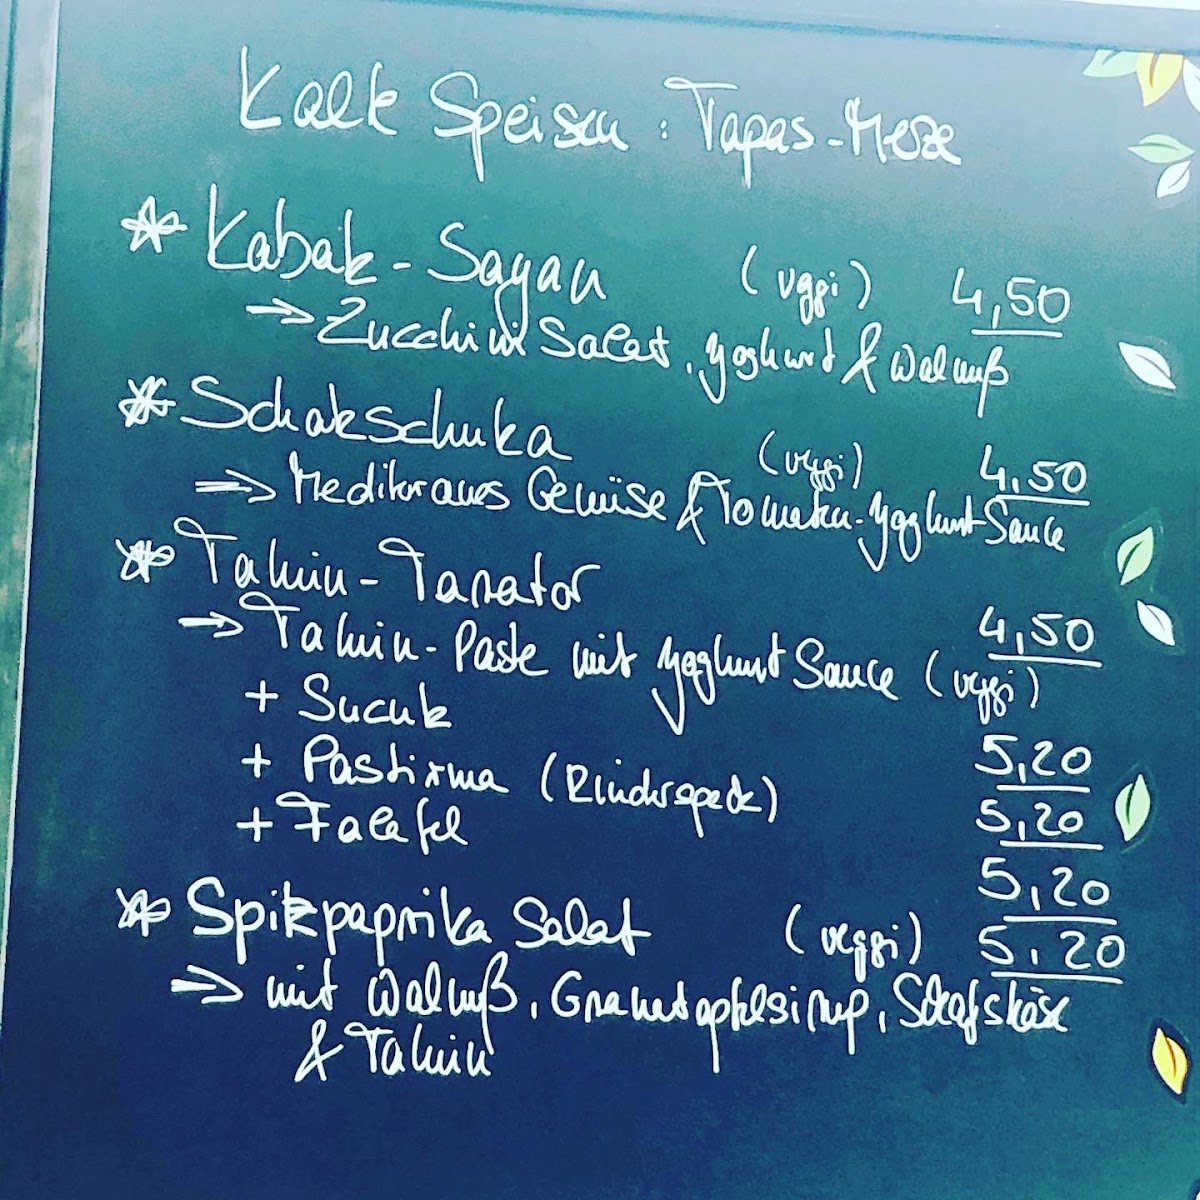 Kalt Speisen : Tapas-Meze
* Kabak-Sayan (veggi) 4,50
→ Zucchini Salat, Yoghurt & Walnuß
* Schakschuka (veggi) 4,50
→ Mediteranes Gemüse & Tomaten-Yoghurt-Sauce
* Tahin-Tarator 4,50
→ Tahin-Paste mit Yoghurt Sauce (veggi)
+ Sucuk 5,20
+ Pastirma (Rinderspeck) 5,20
+ Falafel 5,20
* Spitzpaprika Salat (veggi) 5,20
→ mit Walnuß, Granatapfelsirup, Schafskäse
& Tahin